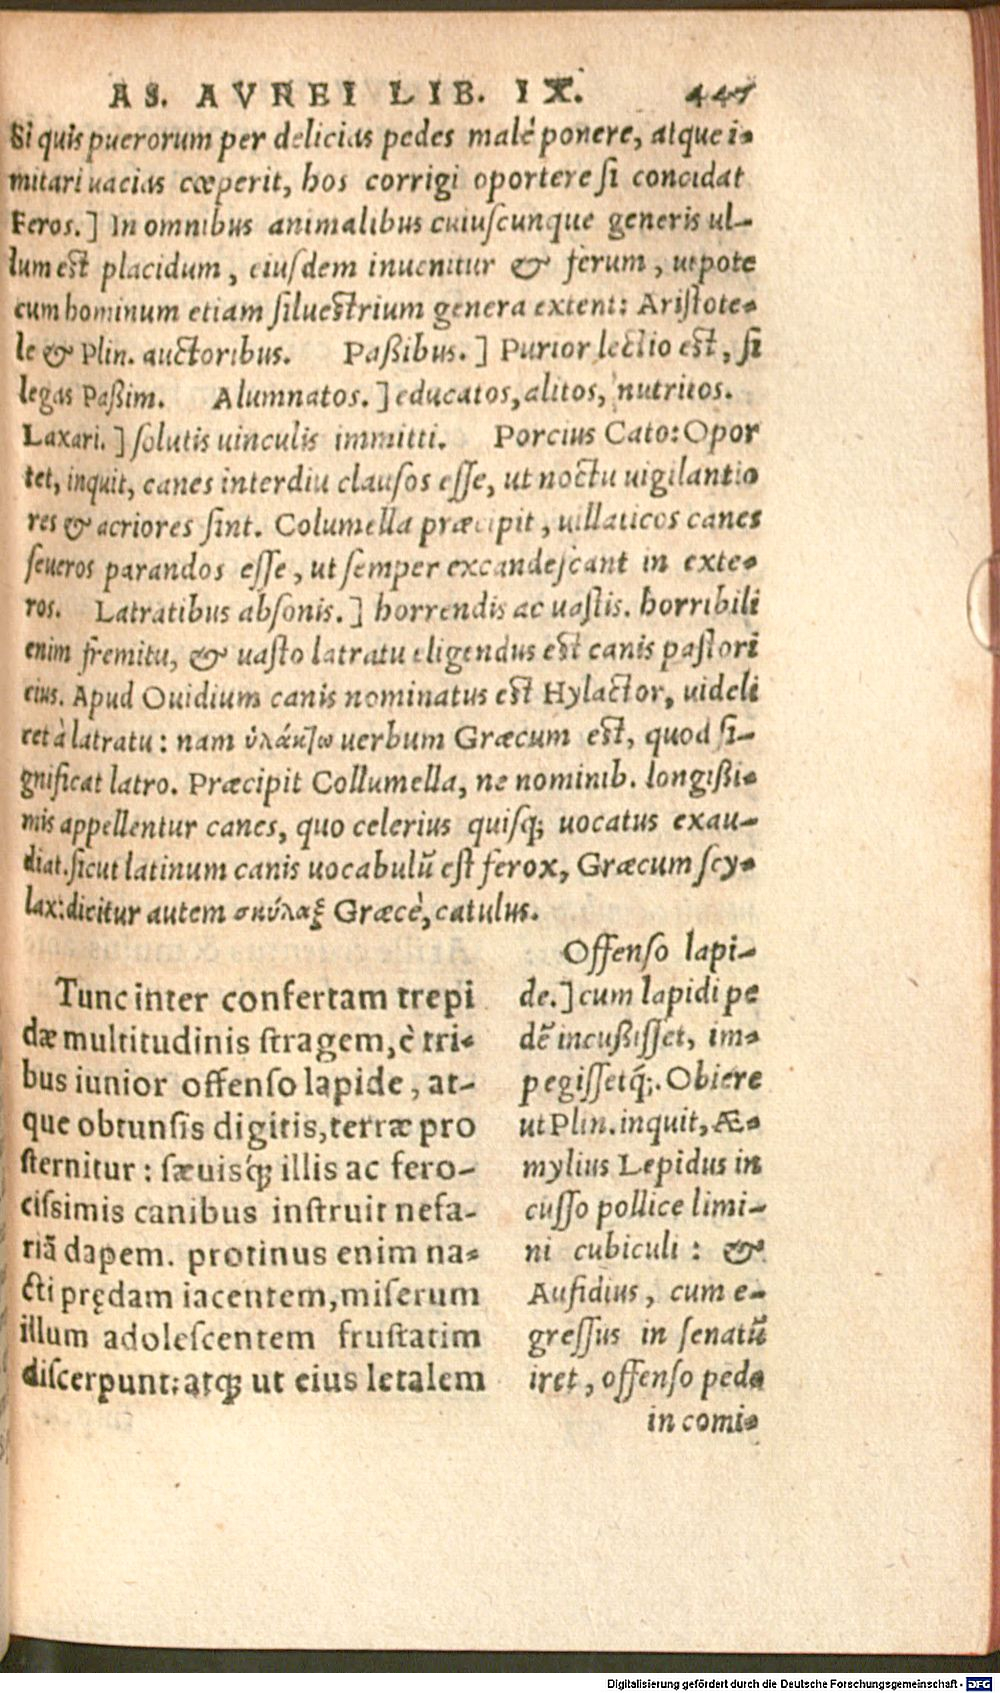 AS. AVREI LIB. IX. 447
Si quis puerorum per delicias pedes malè ponere, atque i-
mitari uacias cœperit, hos corrigi oportere si concidat
Feros.] In omnibus animalibus cuiuscunque generis ul-
lum est placidum, eiusdem inuenitur & ferum, utpote
cum hominum etiam siluestrium genera extent: Aristote-
le & Plin. auctoribus. Paßibus.] Purior lectio est, si
legas Paßim. Alumnatos.] educatos, alitos, nutritos.
Laxari.] solutis uinculis immitti. Porcius Cato: Opor
tet, inquit, canes interdiu clausos esse, ut noctu uigilantio
res & acriores sint. Columella præcipit, uillaticos canes
seueros parandos esse, ut semper excandescant in exte-
ros. Latratibus absonis.] horrendis ac uastis. horribili
enim fremitu, & uasto latratu eligendus est canis pastori
cius. Apud Ouidium canis nominatus est Hylactor, uideli
cet à latratu: nam ὑλάκτω uerbum Græcum est, quod si-
gnificat latro. Præcipit Collumella, ne nominib. longißi-
mis appellentur canes, quo celerius quisq; uocatus exau-
diat. sicut latinum canis uocabulũ est ferox, Græcum scy-
lax: dicitur autem σκύλαξ Græcè, catulus.
Tunc inter confertam trepi
dæ multitudinis stragem, è tri-
bus iunior offenso lapide, at-
que obtunsis digitis, terræ pro
sternitur: sæuisq́; illis ac fero-
cissimis canibus instruit nefa-
riã dapem. protinus enim na-
cti prędam iacentem, miserum
illum adolescentem frustatim
discerpunt: atq; ut eius letalem
Offenso lapi-
de.] cum lapidi pe
dẽ incußisset, im-
pegissetq́;. Obiere
ut Plin. inquit, Æ-
mylius Lepidus in
cusso pollice limi-
ni cubiculi: &
Aufidius, cum e-
gressus in senatũ
iret, offenso pede
in comi-
Digitalisierung gefördert durch die Deutsche Forschungsgemeinschaft - DFG